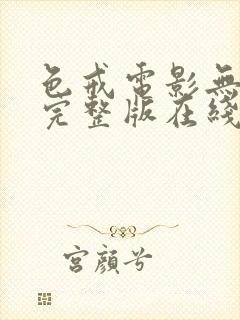 色戒電影無
完整版在綫
宮顏兮